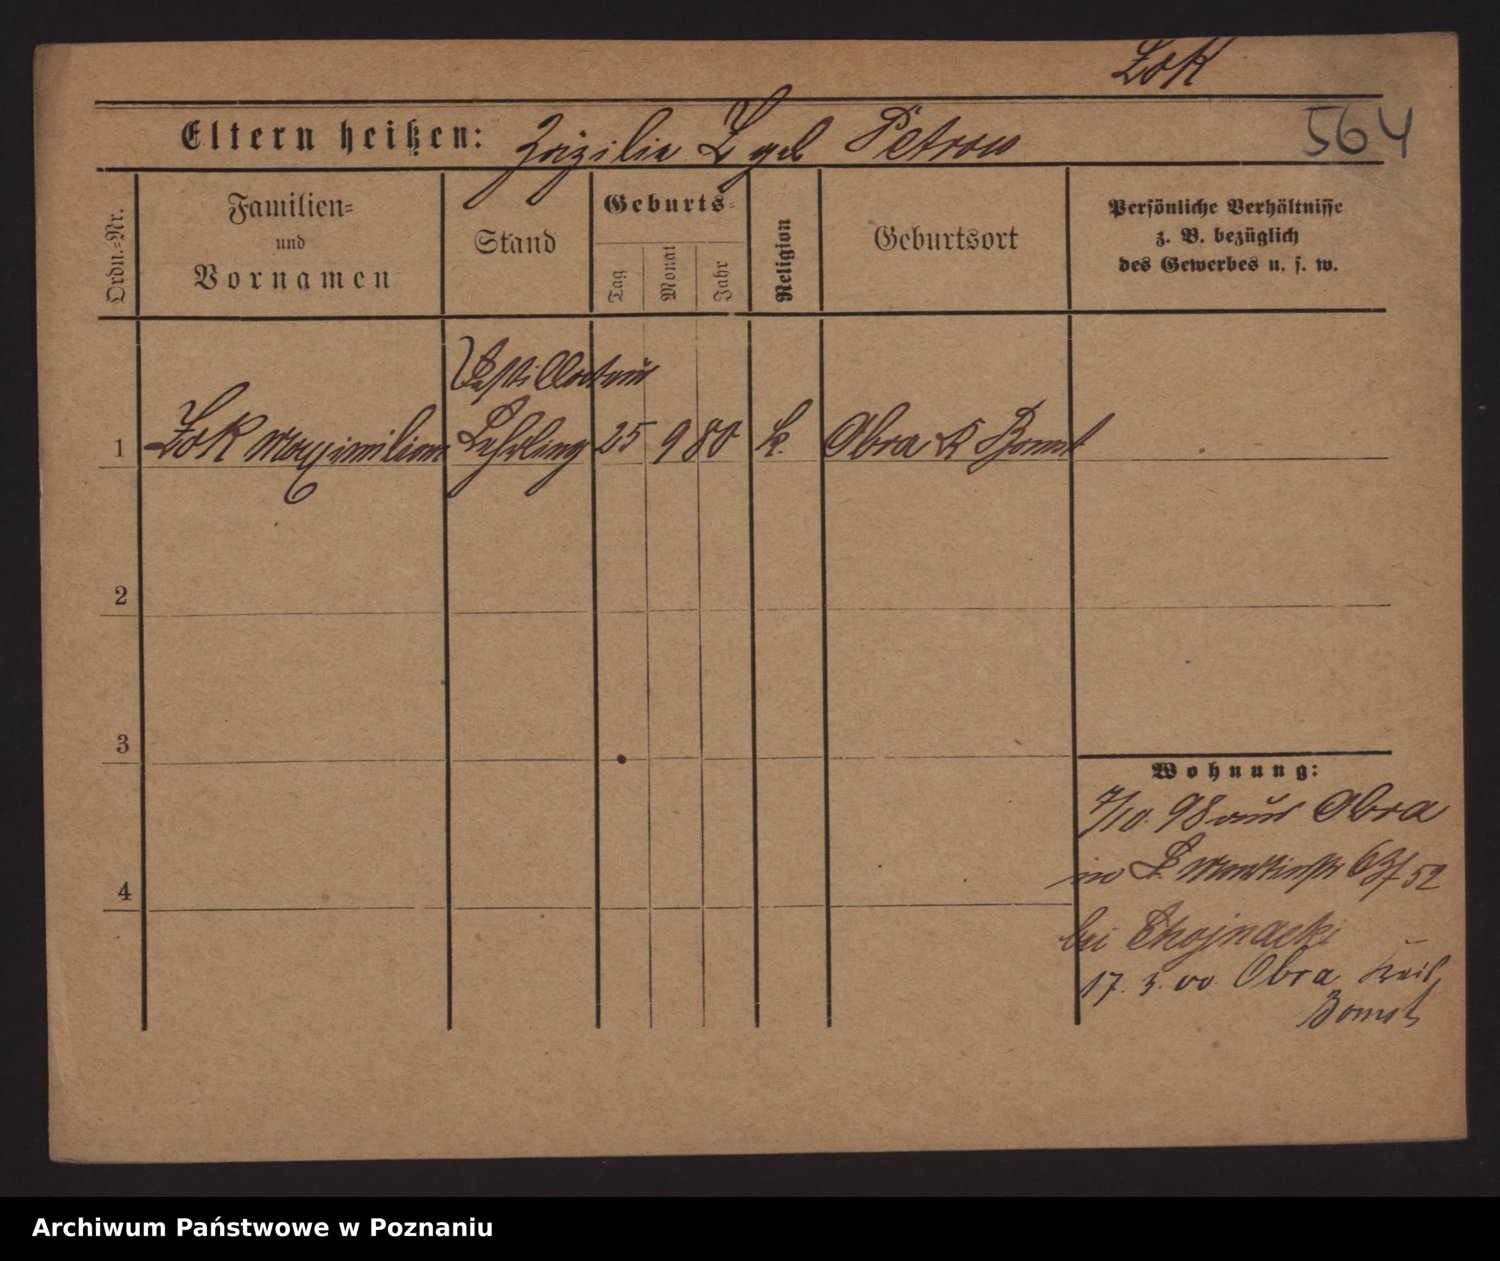 Żok
564
Eltern heißen: Zäzilie Ż geb Petrow
Ordn.-Nr.
Familien-
und
Vornamen
Stand
Geburts-
Tag
Monat
Jahr
Religion
Geburtsort
Persönliche Verhältnisse
z. B. bezüglich
des Gewerbes u. s. w.
Destillateur
1 Żok Maximilian Lehrling 25 9 80 k. Obra K Bomst
2
3
4
Wohnung:
7/10. 98 aus Obra
in
bei Chojnacki
17. 3. 00. Obra Kreis
Bomst
Archiwum Państwowe w Poznaniu